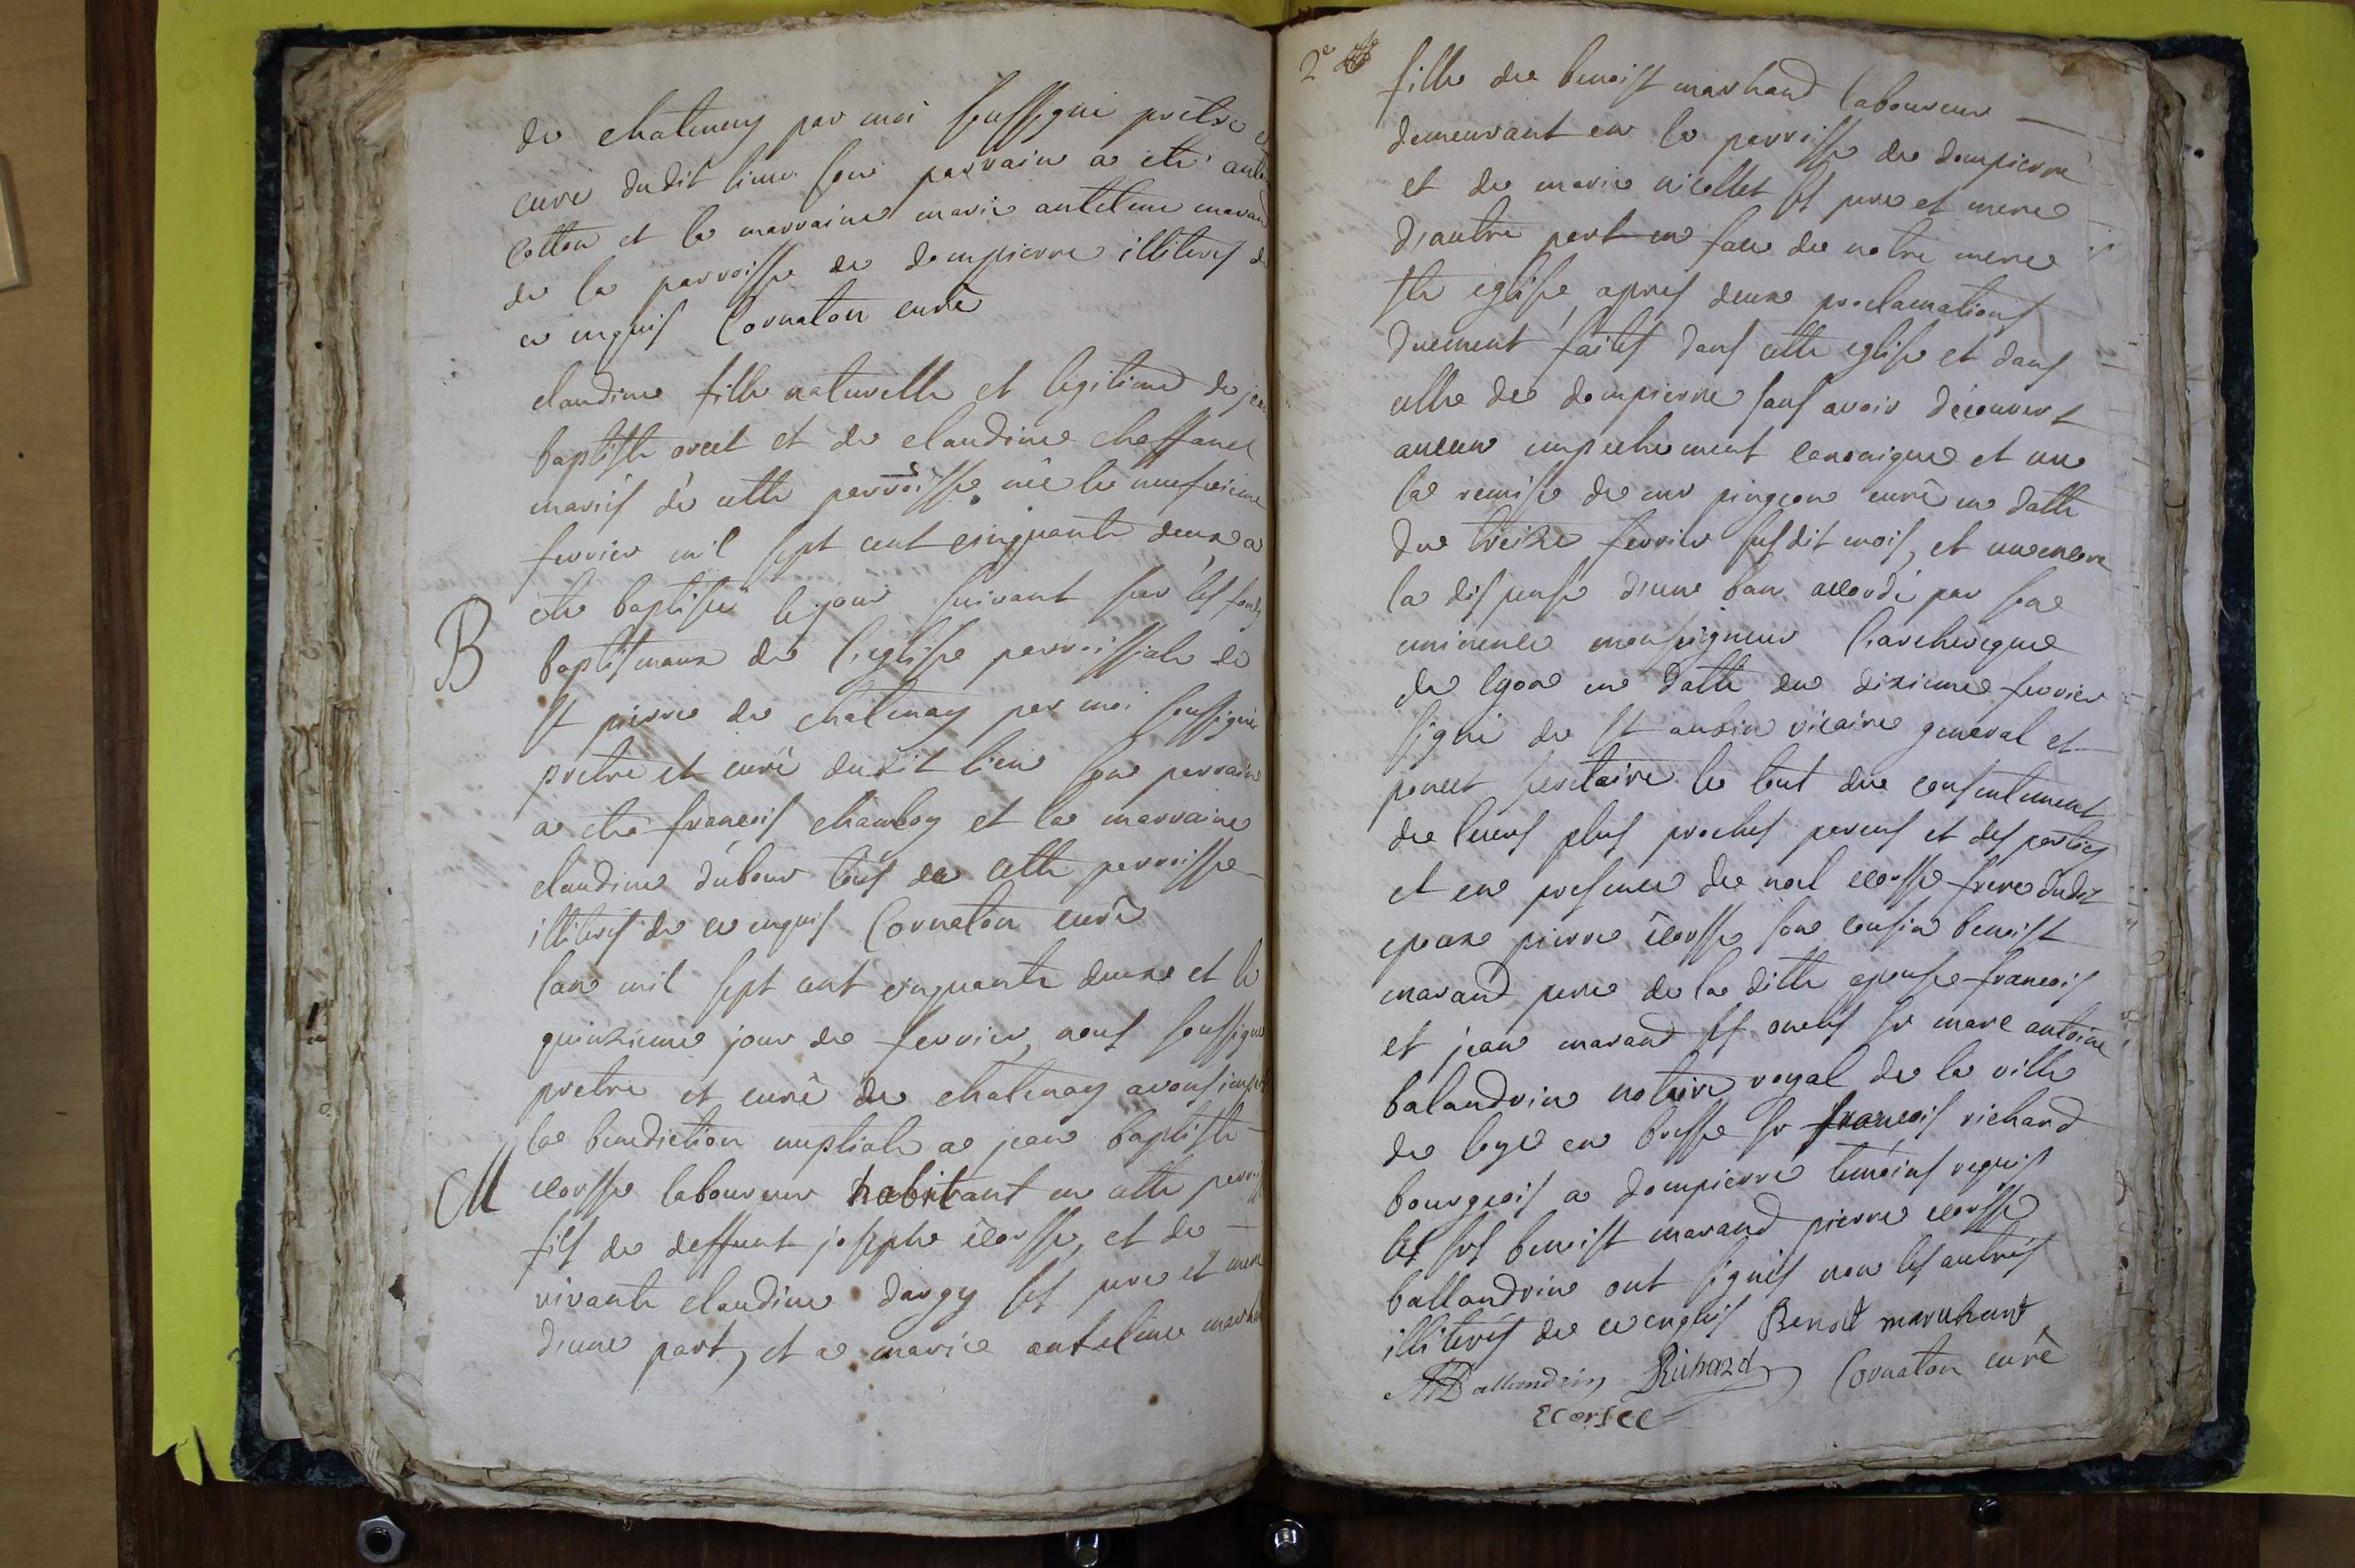 de chatenay par moi soussigné prêtre et
curé dudit lieu son parrain a eté
cotton et la marraine marie antelme marand
de la parroisse de dompierre illiterés de
ce enquis Cornaton curé
claudine fille naturelle et legitime de jean
baptiste orcet et de claudine cheffanel
mariés de cette parroisse née le neufvieme
fevrier mil sept cent cinquante deux a
B été baptisée le jour suivant sur les fonds
baptismaux de l'eglise parroissiale de
st pierre de chatenay par moi soussigné
prêtre et curé dudit lieu son parrain
a eté françois chambey et la marraine
claudine dubour tous de cette parroisse
illiterés de ce enquis Cornaton curé
lan mil sept cent cinquante deux et le
quinzieme jour de fevrier, nous soussigné
prêtre et curé de chatenay avons
la benediction nuptiale a jean baptiste
M ecorsse laboureur habitant en cette parroisse
fils de deffunt joseph ecorsse, et de
vivante claudine dargy ses pere et mere
d'une part, et a marie antelme
2e
fille de benoist marhand laboureur
demeurant en la parroisse de dompierre
et de marie nicollet ses pere et mere
d'autre part en face de notre mere
ste eglise, apres deux proclamations
duement faites dans cette eglise et dans
celle de dompierre sans avoir découvert
aucun empechement canonique et vue
la remise de mr pingeon curé en datte
du treize fevrier susdit mois, et vue encore
la dispense d'une ban accordé par son
eminence monseigneur l'archeveque
de lyon en datte du dixieme fevrier
signé de st aubin vicaire general et
poncet secretaire le tout du consentement
de leurs plus proches parens et des parties
et en presence de noel ecorsse frere dudit
epoux pierre ecorsse son cousin benoist
marand pere de la ditte epouse françois
et jean marand ses oncles sr marc antoine
balandrin notaire royal de la ville
de loye en bresse sr françois richard
bourgeois a dompierre temoins requis
les srs benoist marand pierre ecorsse
ballandrin ont signés non les autres
illiterés de ce enquis Benoit maruhant
Ballandrin Richard Cornaton curé
Ecorsee